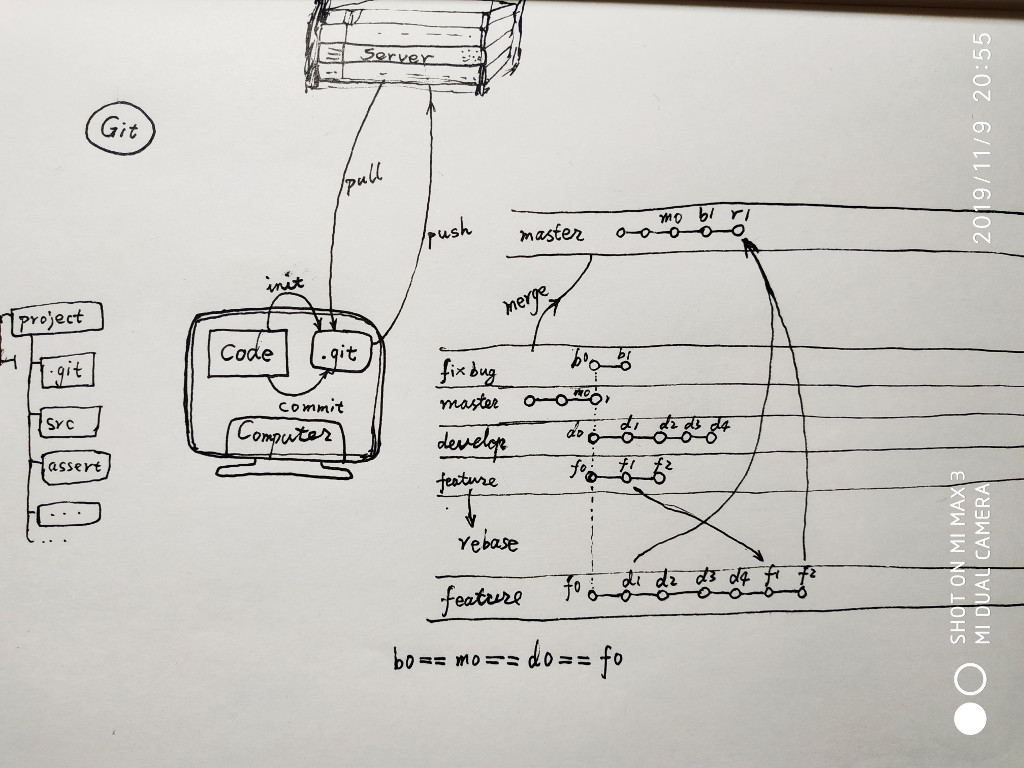 Server
Git
pull
push
init
Code
.git
commit
Computer
project
.git
src
assert
...
....
master
m0 b1 r1
merge
fixbug
b0 b1
master
m0
develop
d0 d1 d2 d3 d4
feature
f0 f1 f2
rebase
feature
f0 d1 d2 d3 d4 f1 f2
b0 == m0 == d0 == f0
2019/11/9 20:55
SHOT ON MI MAX 3
MI DUAL CAMERA